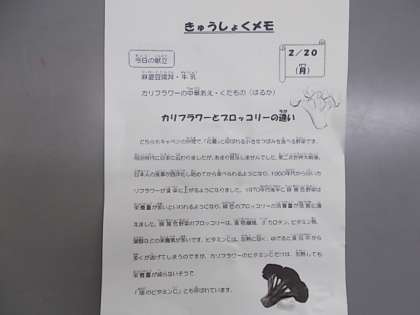 きゅうしょくメモ
2/20
(月)
今日の献立
麻婆豆腐丼・牛乳
カリフラワーの中華あえ・くだもの(はるか)
カリフラワーとブロッコリーの違い
どちらもキャベツの仲間で、「花蕾」と呼ばれる小さなつぼみを食べる野菜です。
明治時代に日本に伝わりましたが、あまり普及しませんでした。第二次世界大戦後、
日本人の食事が西洋化し始めてから食べられるようになり、1960年代から白いカ
リフラワーが食卓に上がるようになりました。1970年代後半に緑黄色野菜は
栄養量が多いといわれるようになり、緑色のブロッコリーの消費量が急激に増
えました。緑黄色野菜のブロッコリーは、食物繊維、βカロテン、ビタミン類、
葉酸などの栄養素が多いです。ビタミンCは、加熱に弱く、ゆでると食品中から
多くが逃げてしまうのですが、カリフラワーのビタミンCだけは、加熱しても
栄養量が減らないそうで、
「畑のビタミンC」とも呼ばれています。